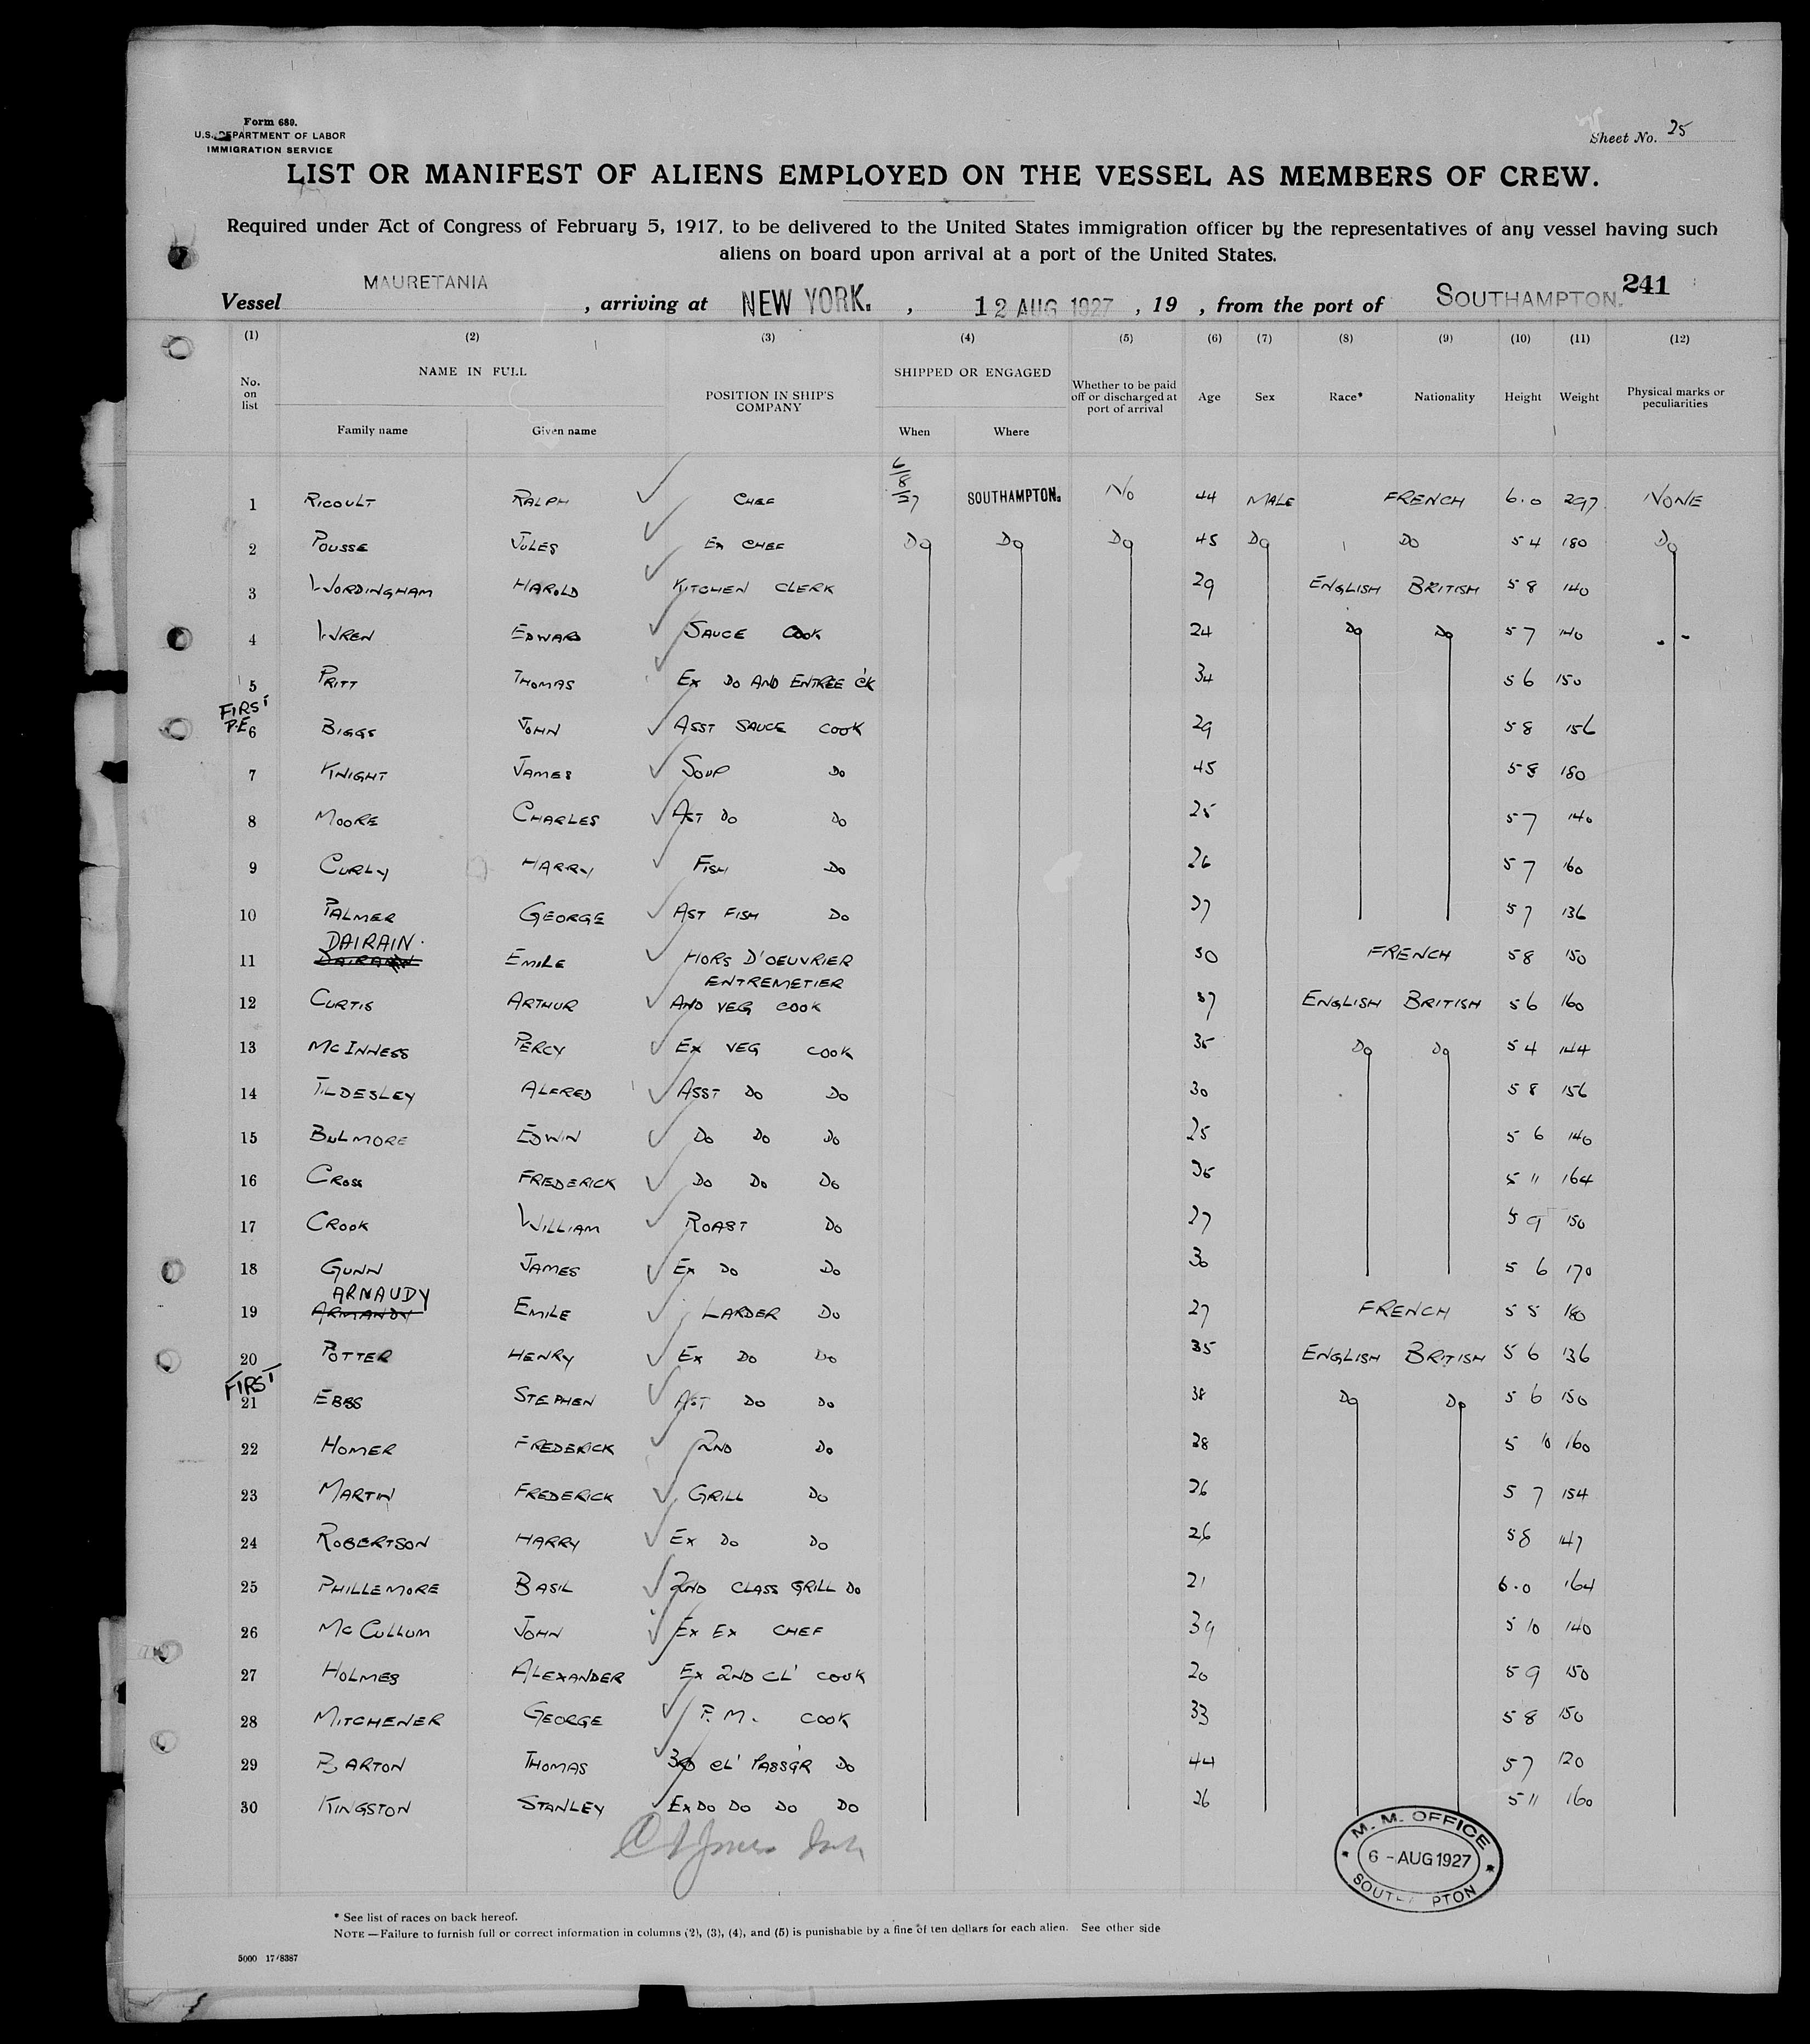 Form 680.
U.S. DEPARTMENT OF LABOR
IMMIGRATION SERVICE
Sheet No. 25
LIST OR MANIFEST OF ALIENS EMPLOYED ON THE VESSEL AS MEMBERS OF CREW.
Required under Act of Congress of February 5, 1917, to be delivered to the United States immigration officer by the representatives of any vessel having such
aliens on board upon arrival at a port of the United States.
Vessel MAURETANIA , arriving at NEW YORK. , 12 AUG 1927 , 19 , from the port of SOUTHAMPTON. 241
(1) (2) (3) (4) (5) (6) (7) (8) (9) (10) (11) (12)
No. on list NAME IN FULL POSITION IN SHIP'S COMPANY SHIPPED OR ENGAGED Whether to be paid off or discharged at port of arrival Age Sex Race* Nationality Height Weight Physical marks or peculiarities
Family name Given name When Where
1 RICOULT RALPH CHEF 6/8/27 SOUTHAMPTON. No 44 MALE FRENCH 6.0 297 NONE
2 POUSSE JULES EX CHEF Do Do Do 45 Do Do 5 4 180 Do
3 WORDINGHAM HAROLD KITCHEN CLERK 29 ENGLISH BRITISH 5 8 140
4 WREN EDWARD SAUCE COOK 24 Do Do 5 7 140
5 PRITT THOMAS EX DO AND ENTREE C'K 34 5 6 150
FIRST
P.E. 6 BIGGS JOHN ASST SAUCE COOK 29 5 8 156
7 KNIGHT JAMES SOUP DO 45 5 8 180
8 MOORE CHARLES AST DO DO 25 5 7 140
9 CURLY HARRY FISH DO 26 5 7 160
10 PALMER GEORGE AST FISH DO 37 5 7 136
DAIRAIN.
11 EMILE HORS D'OEUVRIER 30 FRENCH 5 8 150
ENTREMETIER
12 CURTIS ARTHUR AND VEG COOK 37 ENGLISH BRITISH 5 6 160
13 McINNESS PERCY EX VEG COOK 35 Do Do 5 4 144
14 TILDESLEY ALFRED ASST DO DO 30 5 8 156
15 BULMORE EDWIN DO DO DO 25 5 6 140
16 CROSS FREDERICK DO DO DO 36 5 11 164
17 CROOK WILLIAM ROAST DO 27 5 9 150
18 GUNN JAMES EX DO DO 30 5 6 170
ARNAUDY
19 ARMANDY EMILE LARDER DO 27 FRENCH 5 5 180
20 POTTER HENRY EX DO DO 35 ENGLISH BRITISH 5 6 136
FIRST
21 EBBS STEPHEN AST DO DO 38 Do Do 5 6 150
22 HOMER FREDERICK 2ND DO 28 5 10 160
23 MARTIN FREDERICK GRILL DO 26 5 7 154
24 ROBERTSON HARRY EX DO DO 26 5 8 147
25 PHILLEMORE BASIL 2ND CLASS GRILL DO 21 6.0 164
26 McCULLUM JOHN EX EX CHEF 39 5 10 140
27 HOLMES ALEXANDER EX 2ND CL' COOK 20 5 9 150
28 MITCHENER GEORGE P. M. COOK 33 5 8 150
29 BARTON THOMAS 3RD CL' PASSGR DO 44 5 7 120
30 KINGSTON STANLEY EX DO DO DO DO 26 5 11 160
M. M. OFFICE
6 - AUG 1927
* See list of races on back hereof.
NOTE — Failure to furnish full or correct information in columns (2), (3), (4), and (5) is punishable by a fine of ten dollars for each alien. See other side
5000 17/8387